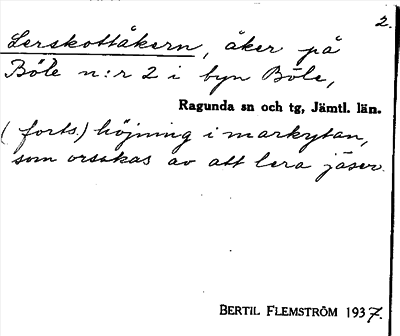 2.
Lerskottåkern, åker på
Böle n:r 2 i byn Böle,
Ragunda sn och tg, Jämtl. län.
(forts.) höjning i markytan,
som orsakas av att lera jäser.
BERTIL FLEMSTRÖM 1937.